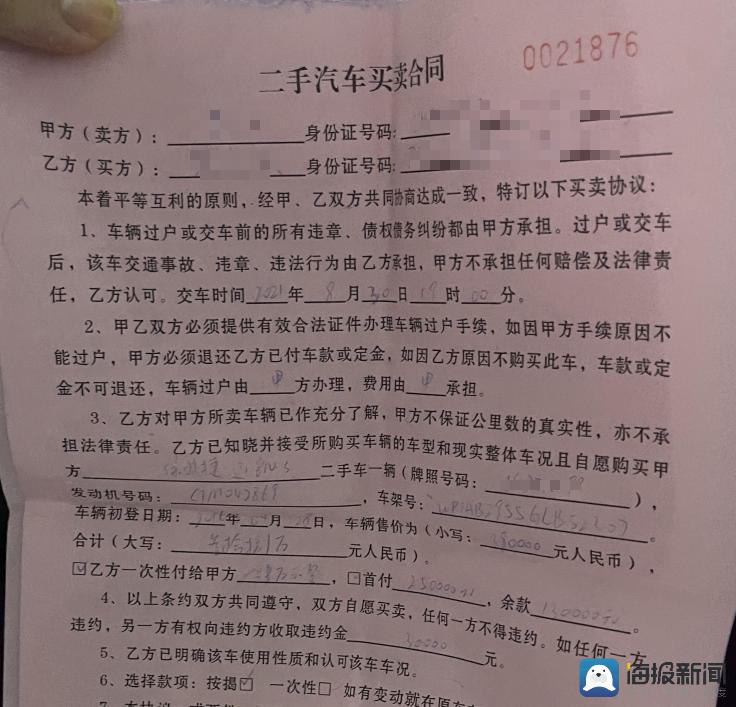 0021876
二手汽车买卖合同
甲方（卖方）： 身份证号码：
乙方（买方）： 身份证号码：
本着平等互利的原则，经甲、乙双方共同协商达成一致，特订以下买卖协议：
1、车辆过户或交车前的所有违章、债权债务纠纷都由甲方承担。过户或交车
后，该车交通事故、违章、违法行为由乙方承担，甲方不承担任何赔偿及法律责
任，乙方认可。交车时间2021年8月30日19时00分。
2、甲乙双方必须提供有效合法证件办理车辆过户手续，如因甲方手续原因不
能过户，甲方必须退还乙方已付车款或定金，如因乙方原因不购买此车，车款或定
金不可退还，车辆过户由甲方办理，费用由甲承担。
3、乙方对甲方所卖车辆已作充分了解，甲方不保证公里数的真实性，亦不承
担法律责任。乙方已知晓并接受所购买车辆的车型和现实整体车况且自愿购买甲
方 二手车一辆（牌照号码： ），
发动机号码： ，车架号： 。
车辆初登日期： 年 月 日，车辆售价为（小写：380000元人民币），
合计（大写： 元人民币）。
☑乙方一次性付给甲方 ，□首付250000元，余款130000元。
4、以上条约双方共同遵守，双方自愿买卖，任何一方不得违约。如任何一方
违约，另一方有权向违约方收取违约金30000元。
5、乙方已明确该车使用性质和认可该车车况。
6、选择款项：按揭☑ 一次性□ 如有变动就在原
海报新闻